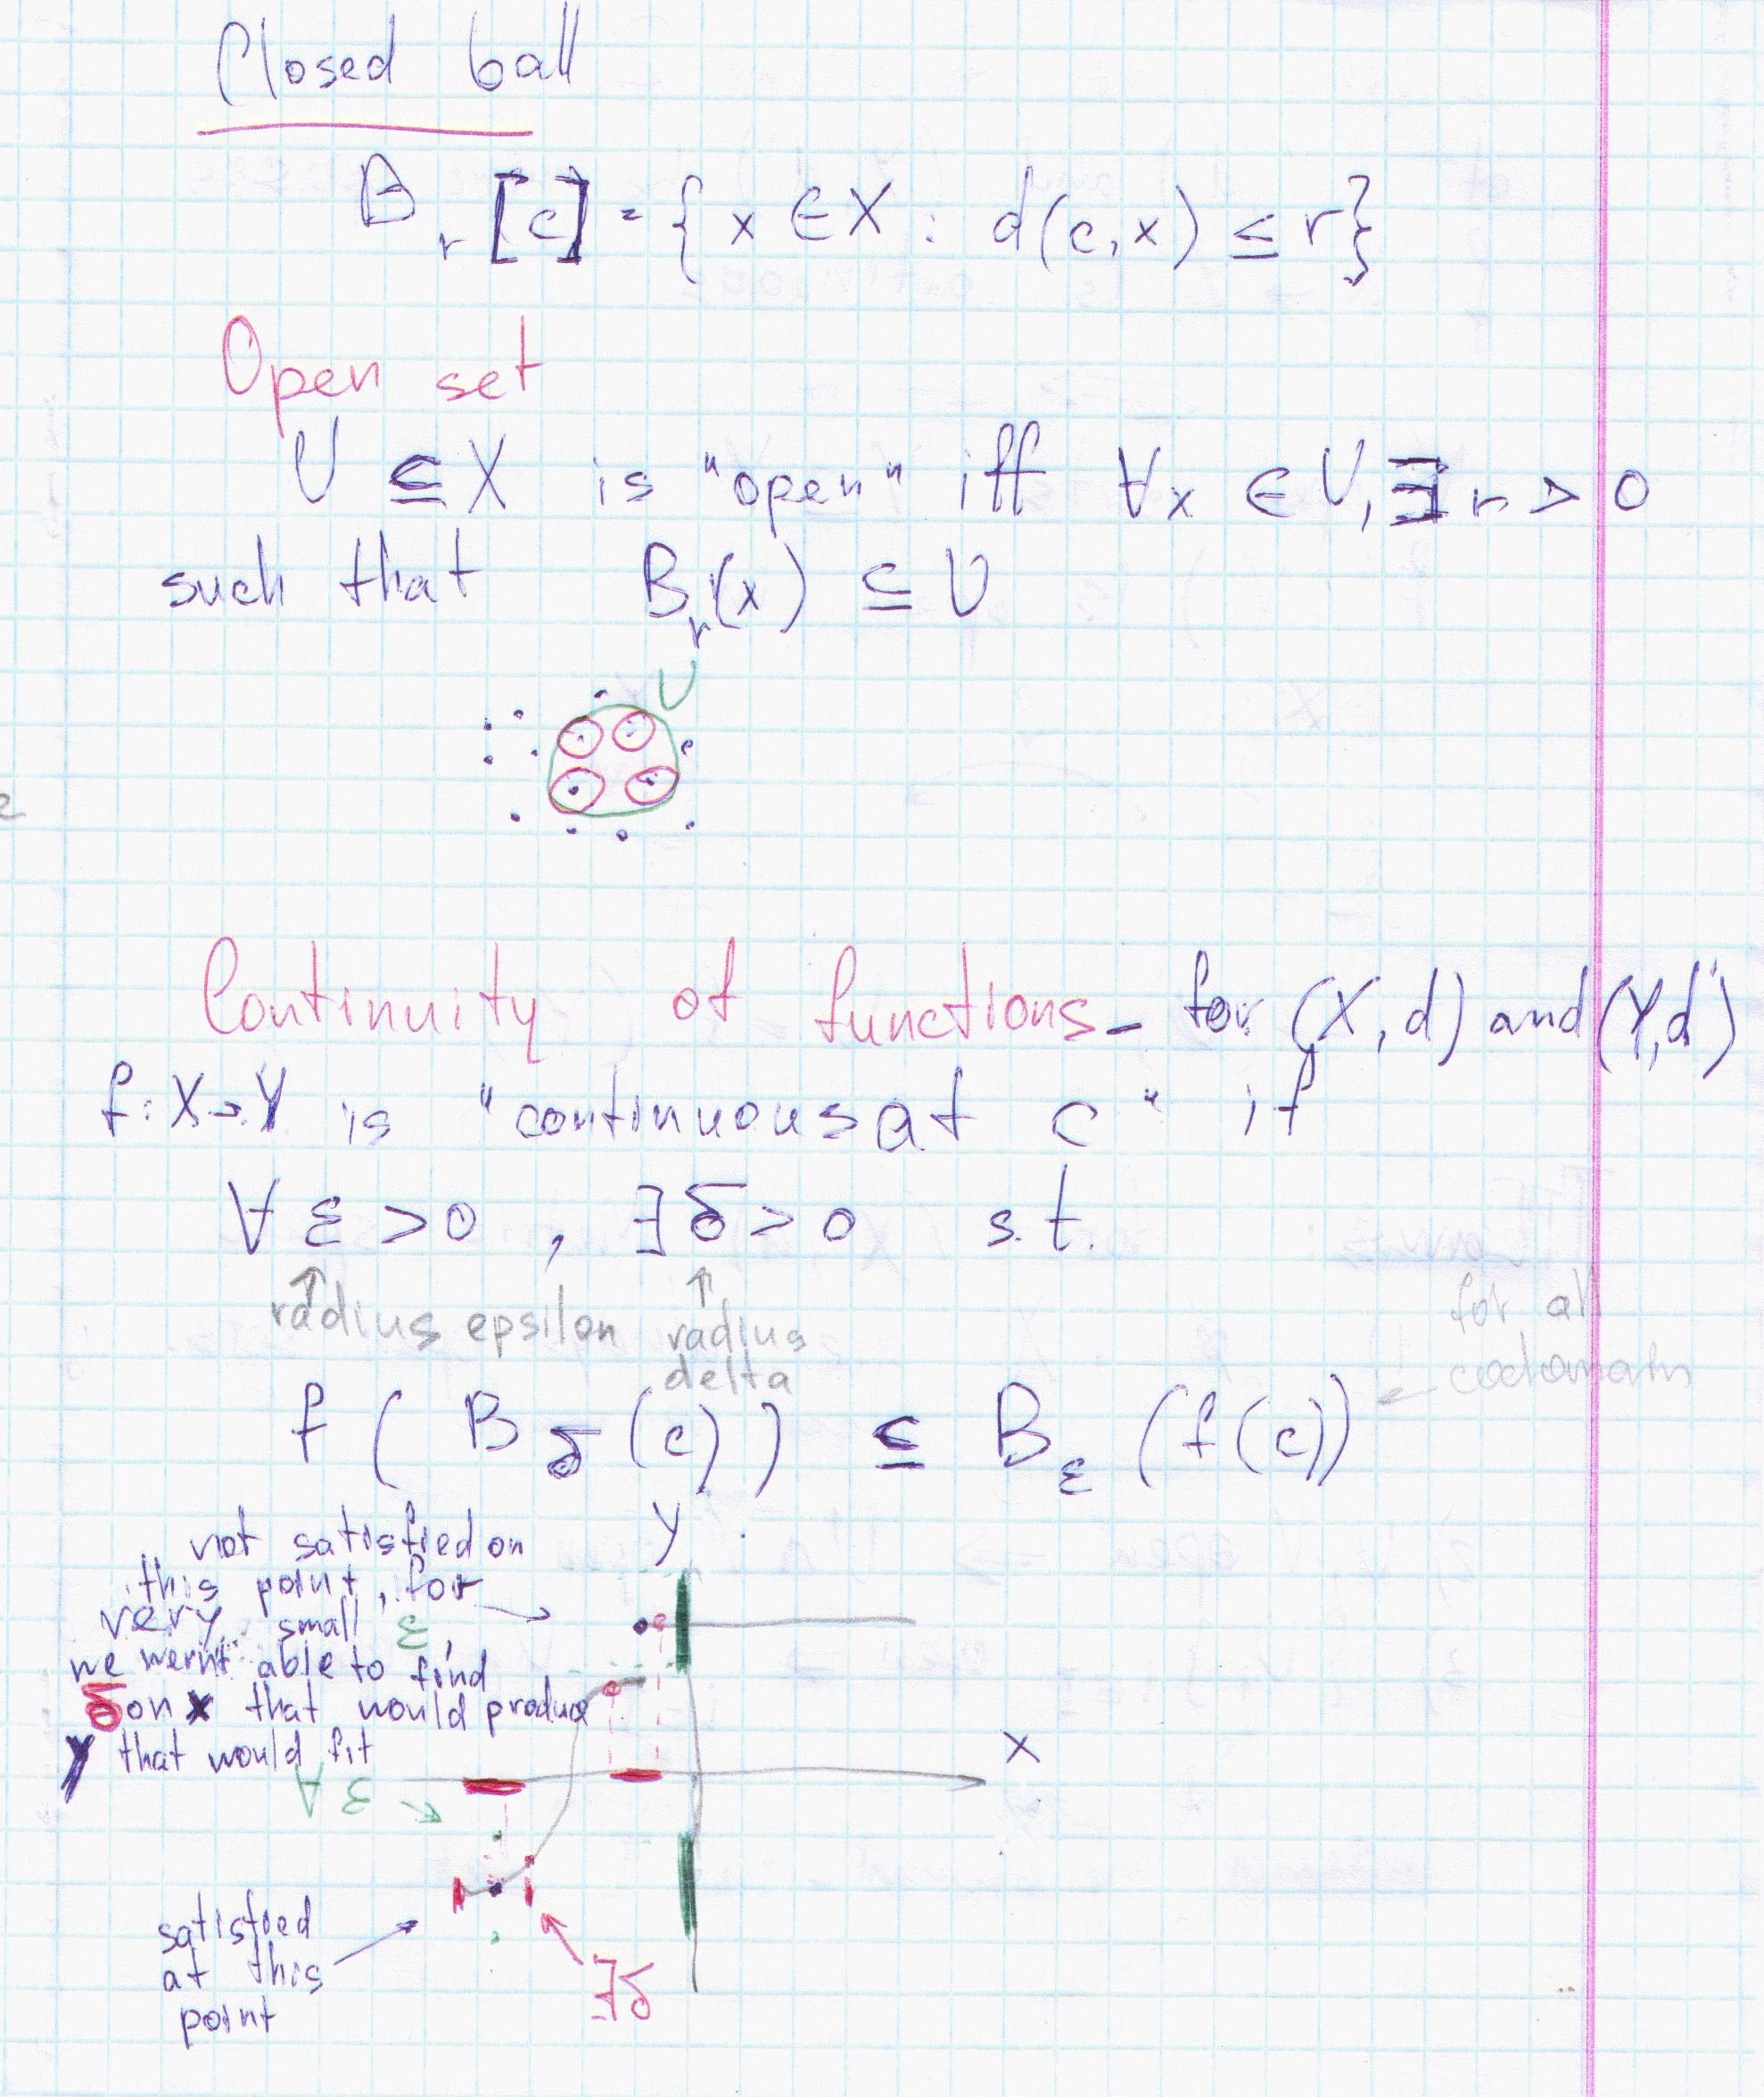 Closed ball
B_r [c] = { x ∈ X : d(c, x) ≤ r }
Open set
U ⊆ X is "open" iff ∀x ∈ U, ∃ r > 0
such that B_r(x) ⊆ U
U
Continuity of functions - for (X, d) and (Y, d')
f: X → Y is "continuous at c" if
∀ ε > 0 , ∃ δ > 0 s.t.
radius epsilon radius
delta
for all
codomain
f ( B_δ (c) ) ⊆ B_ε (f(c))
y
not satisfied on
this point, for
very small ε
we wernt able to find
δ on x that would produce
y that would fit
x
∀ ε
satisfied
at this
point
∃δ